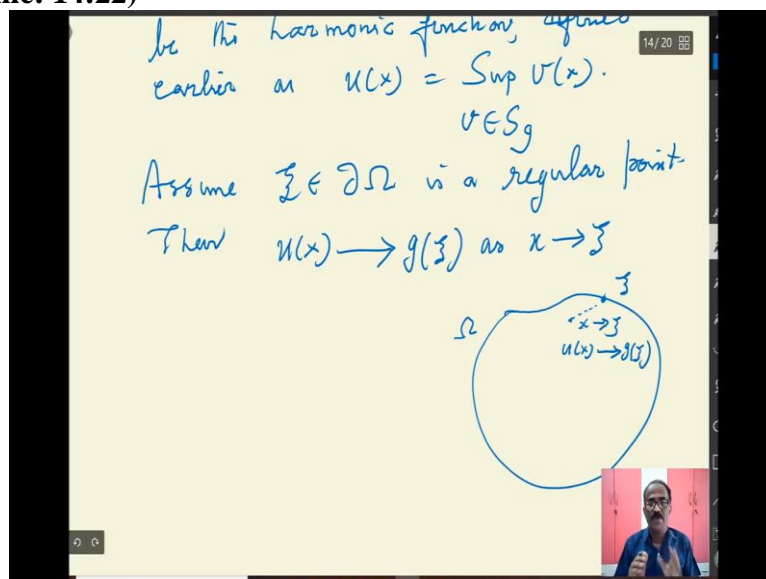 14:22)
be the harmonic function, defined
14/20
earlier as u(x) = Sup v(x).
v∈Sg
Assume ξ ∈ ∂Ω is a regular point.
Then u(x) ⟶ g(ξ) as x → ξ
ξ
Ω
x→ξ
u(x)→g(ξ)